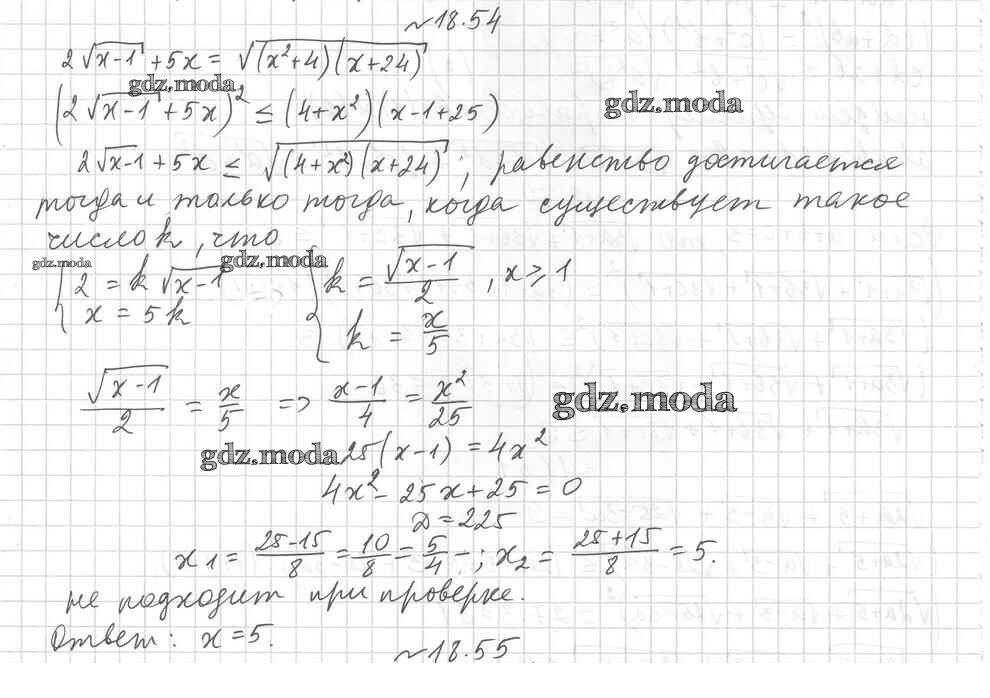 №18.54
2√(x-1) + 5x = √((x²+4)(x+24))
gdz.moda
(2√(x-1) + 5x)² ≤ (4+x²)(x-1+25)
gdz.moda
2√(x-1) + 5x ≤ √((4+x²)(x+24)); равенство достигается
тогда и только тогда, когда существует такое
число k, что
gdz.moda
gdz.moda
{ 2 = k√(x-1) { k = √(x-1)/2, x ≥ 1
x = 5k k = x/5
√(x-1)/2 = x/5 => (x-1)/4 = x²/25
gdz.moda
gdz.moda 25(x-1) = 4x²
4x² - 25x + 25 = 0
D = 225
x₁ = (25-15)/8 = 10/8 = 5/4 - ; x₂ = (25+15)/8 = 5.
не подходит при проверке.
Ответ: x = 5.
№18.55